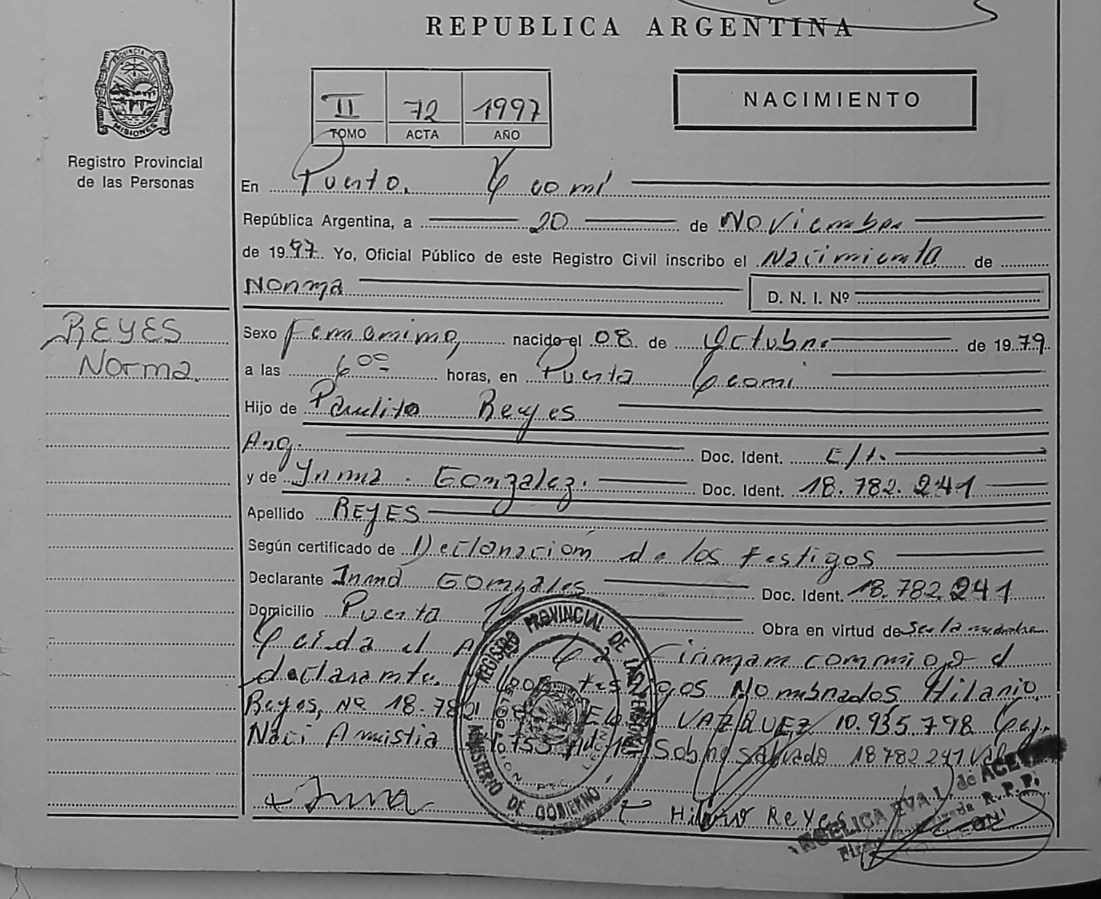 REPUBLICA ARGENTINA
II 72 1997
TOMO ACTA AÑO
NACIMIENTO
PROVINCIA DE MISIONES
Registro Provincial
de las Personas
En Puerto
República Argentina, a 20 de Noviembre
de 1997 Yo, Oficial Público de este Registro Civil inscribo el Nacimiento de
Norma
D. N. I. Nº
REYES
Norma.
Sexo Femenino, nacido el 08 de Octubre de 1979
a las 6 00 horas, en Puerto
Hijo de Paulito Reyes
Arg. Doc. Ident.
y de Irma Gonzalez. Doc. Ident. 18.782.241
Apellido REYES
Según certificado de Declaración de los testigos
Declarante Irma Gonzales Doc. Ident. 18.782.241
Domicilio Puerto Obra en virtud de Ser la madre
Leida el Firman conmigo el
declarante. testigos Nombrados Hilario
Reyes, Nº 18.78 VAZQUEZ 10.935.798
Amistia Sobre salvado 18782241
REGISTRO PROVINCIAL DE LAS PERSONAS
MINISTERIO DE GOBIERNO
Irma
Hilario Reyes
ANGELICA EVA L. de
R. P. P.